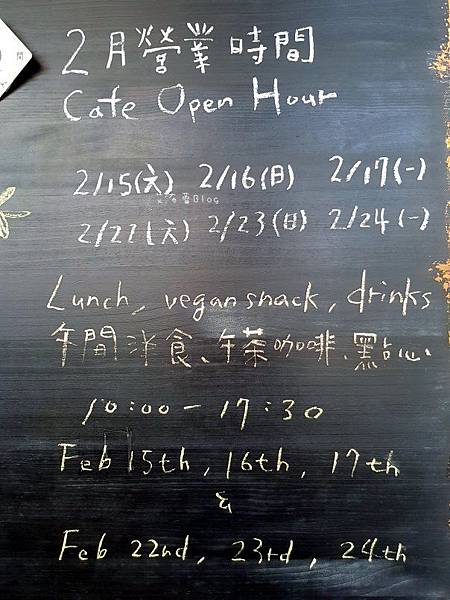 間
2月營業時間
Cafe Open Hour
2/15(六) 2/16(日) 2/17(一)
艾芳蕾Blog
2/22(六) 2/23(日) 2/24(一)
Lunch, vegan snack, drinks
午間洋食、午茶咖啡、點心
10:00-17:30
Feb 15th, 16th, 17th
&
Feb 22nd, 23rd, 24th